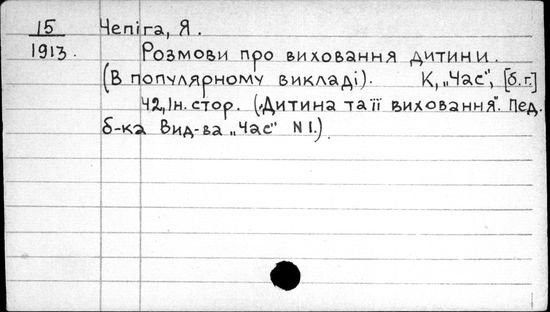 15 Чепіга, Я.
1913. Розмови про виховання дитини.
(В популярному викладі). К, „Час", [б.г.]
42, Ін. стор. („Дитина та її виховання". Пед.
б-ка Вид-ва „Час" N 1.)